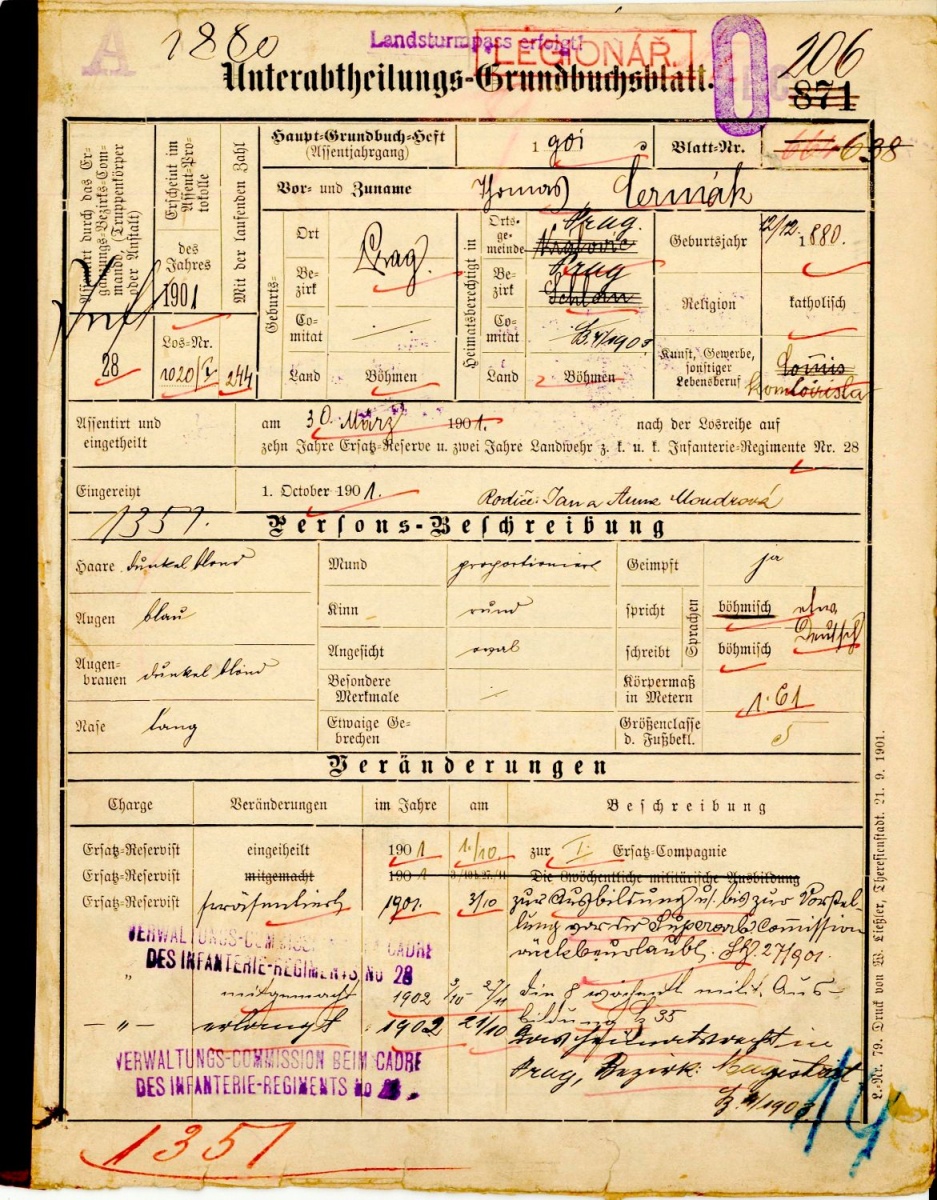 A
1880
Landsturmpass erfolgt!
LEGIONÁŘ.
Unterabtheilungs-Grundbuchsblatt.
0
206
871
Assentirt durch das Ergänzungs-Bezirks-Commando, (Truppenkörper oder Anstalt)
Inft
28
Erscheint im Assent-Protokolle
des Jahres
1901
Los-Nr.
1020/I
Mit der laufenden Zahl
244
Haupt-Grundbuch-Heft
(Assentjahrgang)
1 901
Blatt-Nr.
664 638
Vor- und Zuname
Thomas Cermák
Geburts-
Ort
Prag.
Bezirk
Comitat
Land
Böhmen
Heimatsberechtigt in
Ortsgemeinde
Prag.
Bezirk
Prag
Schlan
Comitat
Z. 4/1903
Land
Böhmen
Geburtsjahr
12/12. 1880.
Religion
katholisch
Kunst, Gewerbe, sonstiger Lebensberuf
Comis
Assentirt und
eingetheilt
am 30. März 1901. nach der Losreihe auf
zehn Jahre Ersatz-Reserve u. zwei Jahre Landwehr z. k. u. k. Infanterie-Regimente Nr. 28
Eingereiht
1. October 1901.
Rodiče: Jan a Anna Moudrová
1351.
Persons-Beschreibung
Haare dunkelblond
Mund proportioniert
Geimpft ja
Augen blau
Kinn rund
Sprachen
spricht böhmisch etwas Deutsch
Augenbrauen dunkelblond
Angesicht oval
schreibt böhmisch
Besondere Merkmale
Körpermaß in Metern 1.61
Nase lang
Etwaige Gebrechen
Größenclasse d. Fußbekl. 5
Veränderungen
Charge Veränderungen im Jahre am Beschreibung
Ersatz-Reservist eingetheilt 1901 1./10. zur I. Ersatz-Compagnie
Ersatz-Reservist mitgemacht 1901 Die 8wöchentliche militärische Ausbildung
Ersatz-Reservist präsentiert 1901. 3/10 zur Ausbildung u. bis zur Vorstel-
lung vor der Superarb. Commission
rückbeurlaubt. 27/901.
VERWALTUNGS-COMMISSION BEIM CADRE
DES INFANTERIE-REGIMENTS No 28
" mitgemacht 1902 3/10 - 27/11 die 8 wöchentl. milit. Aus-
bildung Z 35
— " — erlangt 1902 21/10 das Heimatsrecht in
Prag, Bezirk: Magistrat
Z. 4/1903
VERWALTUNGS-COMMISSION BEIM CADRE
DES INFANTERIE-REGIMENTS No 28.
14
1351
L.-Nr. 79. Druck von W. Ließler, Theresienstadt. 21. 9. 1901.